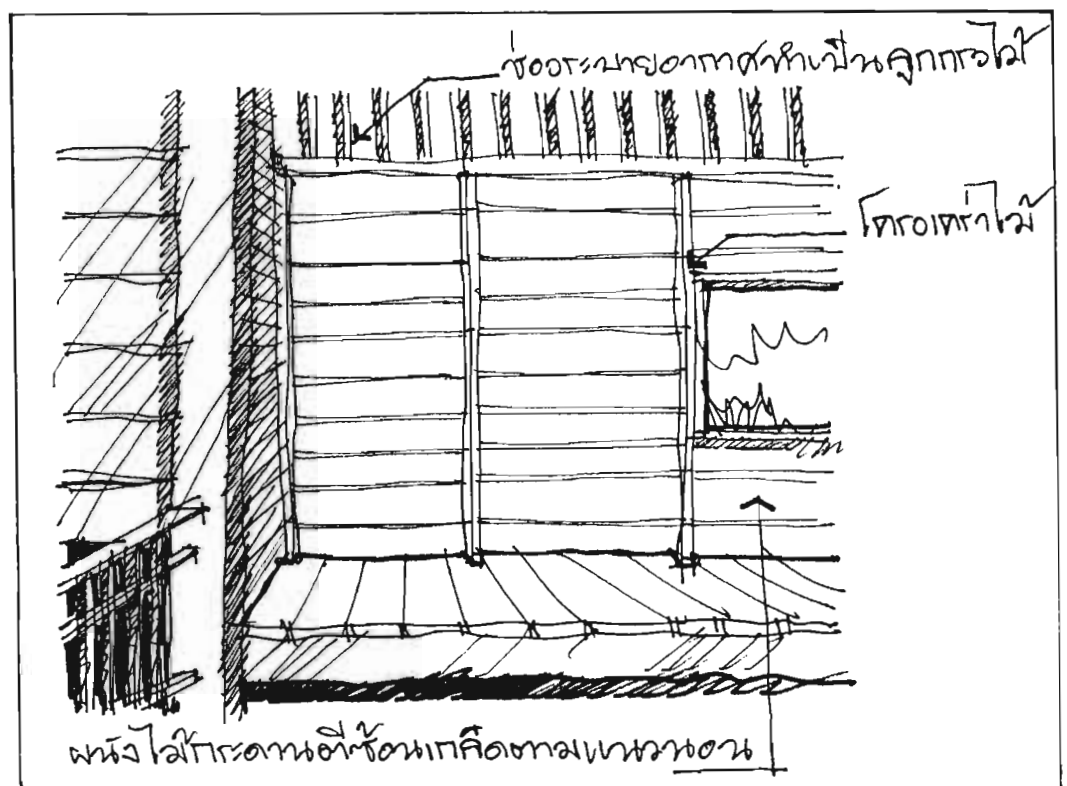 ช่องระบายอากาศทำเป็นลูกกรงไม้
โครงเคร่าไม้
ผนังไม้กระดานตีซ้อนเกล็ดตามแนวนอน